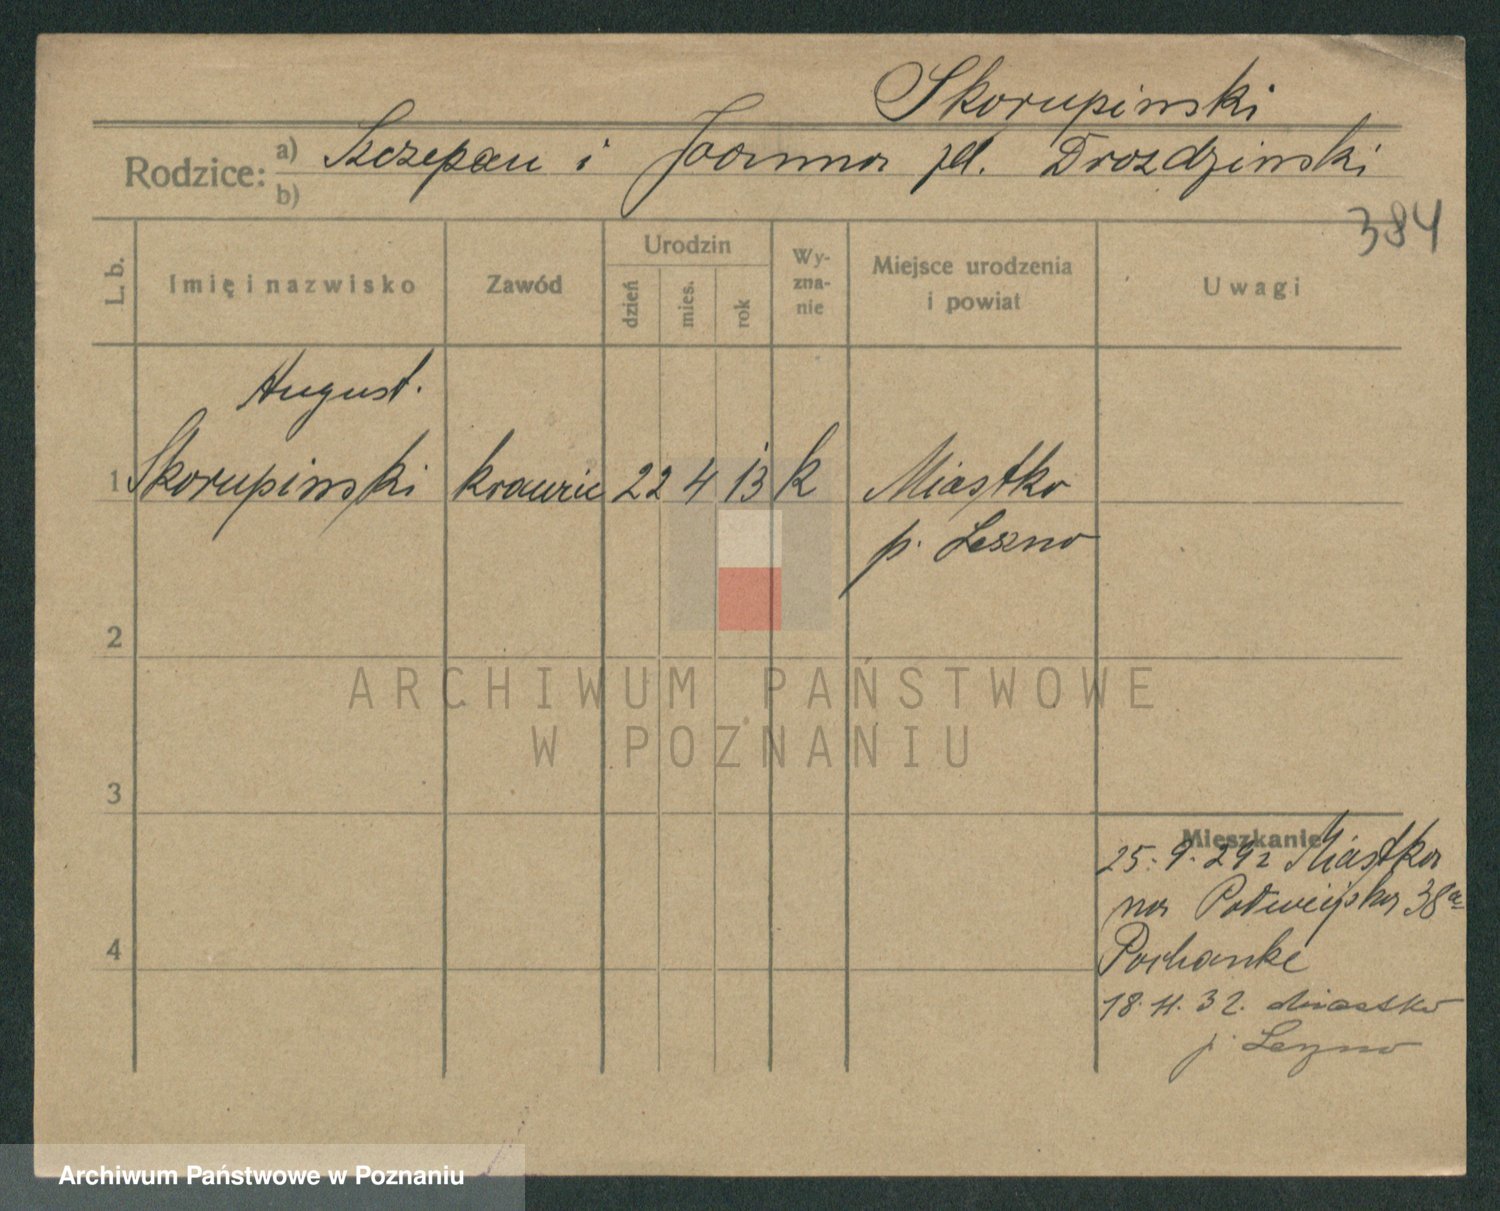 Skorupinski
Rodzice: a) Szczepan i Joanna zd. Drozdzinski
b)
384
L. b. Imię i nazwisko Zawód Urodzin dzień mies. rok Wy-zna-nie Miejsce urodzenia i powiat Uwagi
August.
1 Skorupinski krawiec 22 4 13 k Miastko
p. Leszno
2
ARCHIWUM PAŃSTWOWE
W POZNANIU
3
Mieszkanie
25. 9. 29 r Miastka
na Półwiejska 38a
4 Pochanke
18. 11. 32. Miastko
p. Leszno
Archiwum Państwowe w Poznaniu